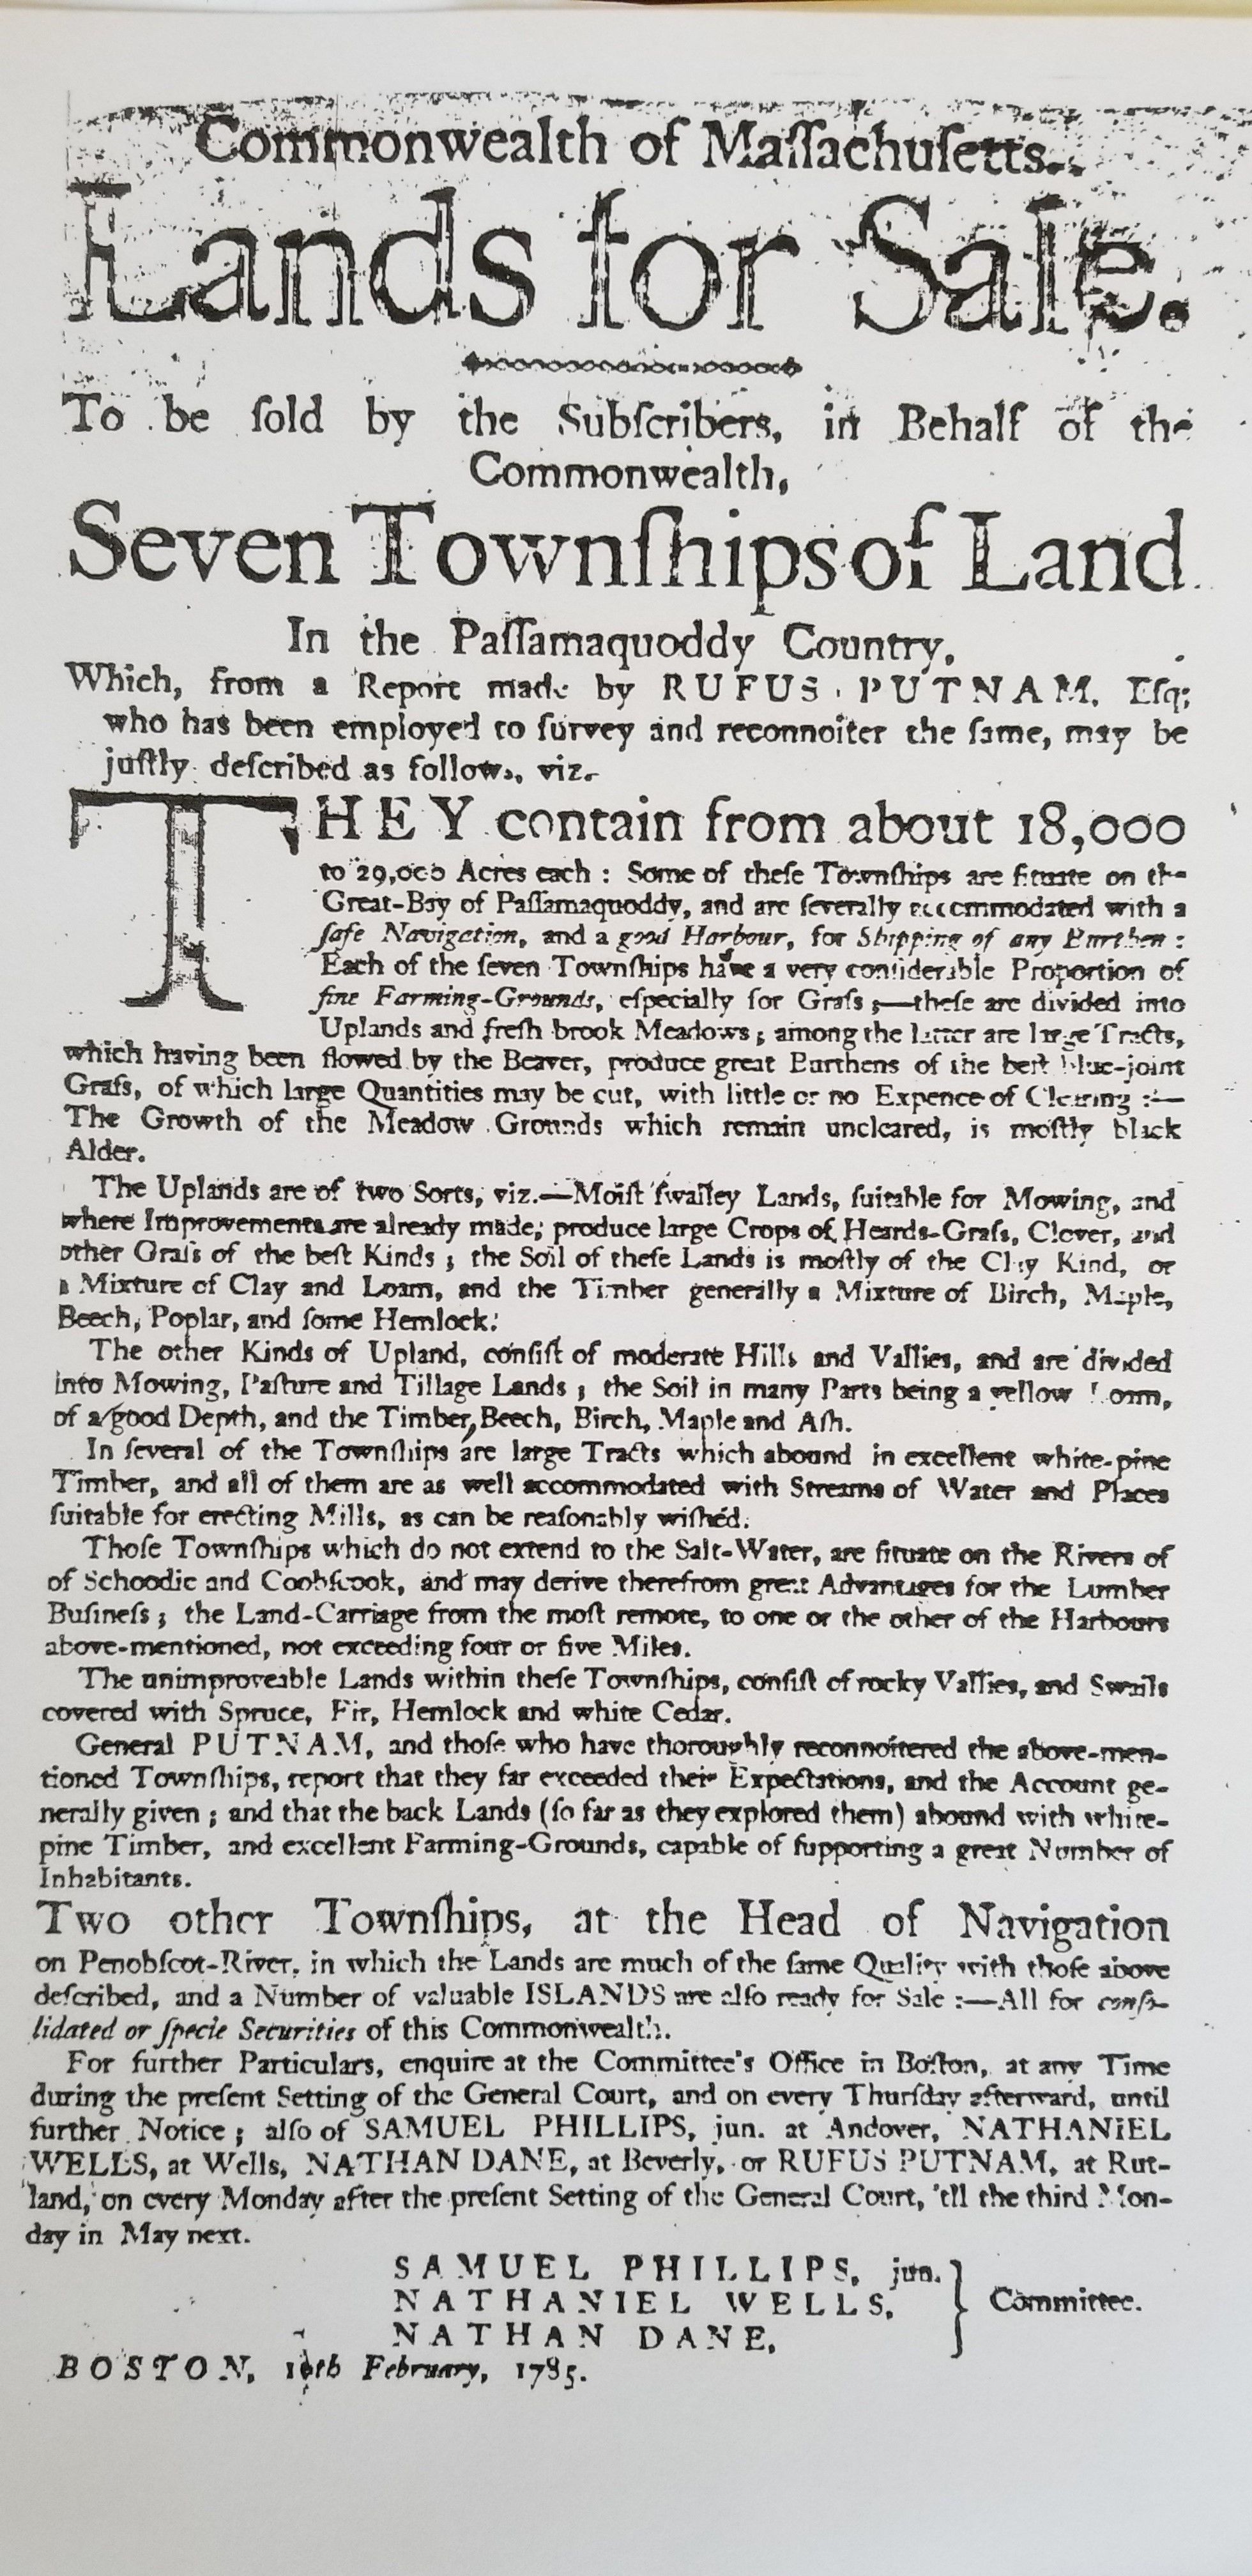 Commonwealth of Maſſachuſetts.
Lands for Sale.
To be ſold by the Subſcribers, in Behalf of the
Commonwealth,
Seven Townſhips of Land
In the Paſſamaquoddy Country,
Which, from a Report made by RUFUS PUTNAM, Eſq;
who has been employed to ſurvey and reconnoiter the ſame, may be
juſtly deſcribed as follows, viz.
THEY contain from about 18,000
to 29,000 Acres each : Some of theſe Townſhips are ſituate on the
Great-Bay of Paſſamaquoddy, and are ſeverally accommodated with a
ſafe Navigation, and a good Harbour, for Shipping of any Burthen :
Each of the ſeven Townſhips have a very conſiderable Proportion of
fine Farming-Grounds, eſpecially for Graſs ;—theſe are divided into
Uplands and freſh brook Meadows ; among the latter are large Tracts,
which having been flowed by the Beaver, produce great Burthens of the beſt blue-joint
Graſs, of which large Quantities may be cut, with little or no Expence of Clearing :—
The Growth of the Meadow Grounds which remain uncleared, is moſtly black
Alder.
The Uplands are of two Sorts, viz.—Moiſt ſwalley Lands, ſuitable for Mowing, and
where Improvements are already made, produce large Crops of Heards-Graſs, Clover, and
other Graſs of the beſt Kinds ; the Soil of theſe Lands is moſtly of the Clay Kind, or
a Mixture of Clay and Loam, and the Timber generally a Mixture of Birch, Maple,
Beech, Poplar, and ſome Hemlock.
The other Kinds of Upland, conſiſt of moderate Hills and Vallies, and are divided
into Mowing, Paſture and Tillage Lands ; the Soil in many Parts being a yellow Loam,
of a good Depth, and the Timber, Beech, Birch, Maple and Aſh.
In ſeveral of the Townſhips are large Tracts which abound in excellent white-pine
Timber, and all of them are as well accommodated with Streams of Water and Places
ſuitable for erecting Mills, as can be reaſonably wiſhed.
Thoſe Townſhips which do not extend to the Salt-Water, are ſituate on the Rivers of
of Schoodic and Coobſcook, and may derive therefrom great Advantages for the Lumber
Buſineſs ; the Land-Carriage from the moſt remote, to one or the other of the Harbours
above-mentioned, not exceeding four or five Miles.
The unimproveable Lands within theſe Townſhips, conſiſt of rocky Vallies, and Swails
covered with Spruce, Fir, Hemlock and white Cedar.
General PUTNAM, and thoſe who have thoroughly reconnoitered the above-men-
tioned Townſhips, report that they far exceeded their Expectations, and the Account ge-
nerally given ; and that the back Lands (ſo far as they explored them) abound with white-
pine Timber, and excellent Farming-Grounds, capable of ſupporting a great Number of
Inhabitants.
Two other Townſhips, at the Head of Navigation
on Penobſcot-River, in which the Lands are much of the ſame Quality with thoſe above
deſcribed, and a Number of valuable ISLANDS are alſo ready for Sale :—All for conſo-
lidated or ſpecie Securities of this Commonwealth.
For further Particulars, enquire at the Committee's Office in Boſton, at any Time
during the preſent Setting of the General Court, and on every Thurſday afterward, until
further Notice ; alſo of SAMUEL PHILLIPS, jun. at Andover, NATHANIEL
WELLS, at Wells, NATHAN DANE, at Beverly, or RUFUS PUTNAM, at Rut-
land, on every Monday after the preſent Setting of the General Court, 'till the third Mon-
day in May next.
SAMUEL PHILLIPS, jun.
NATHANIEL WELLS,
NATHAN DANE,
Committee.
BOSTON, February, 1785.